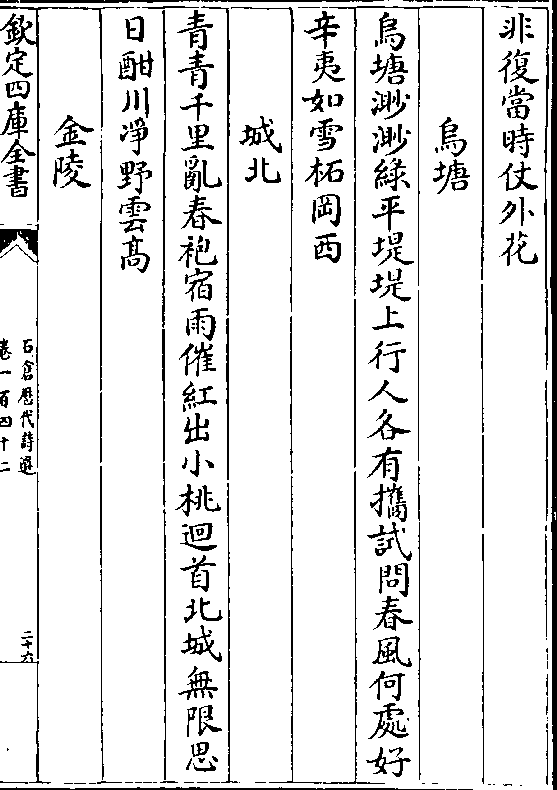 非復當時仗外花
烏塘
烏塘渺渺綠平堤堤上行人各有攜試問春風何處好
辛夷如雪柘岡西
城北
青青千里亂春袍宿雨催紅出小桃迴首北城無限思
日酣川淨野雲高
金陵
欽定四庫全書
石倉歷代詩選
卷一百四十二
二十六